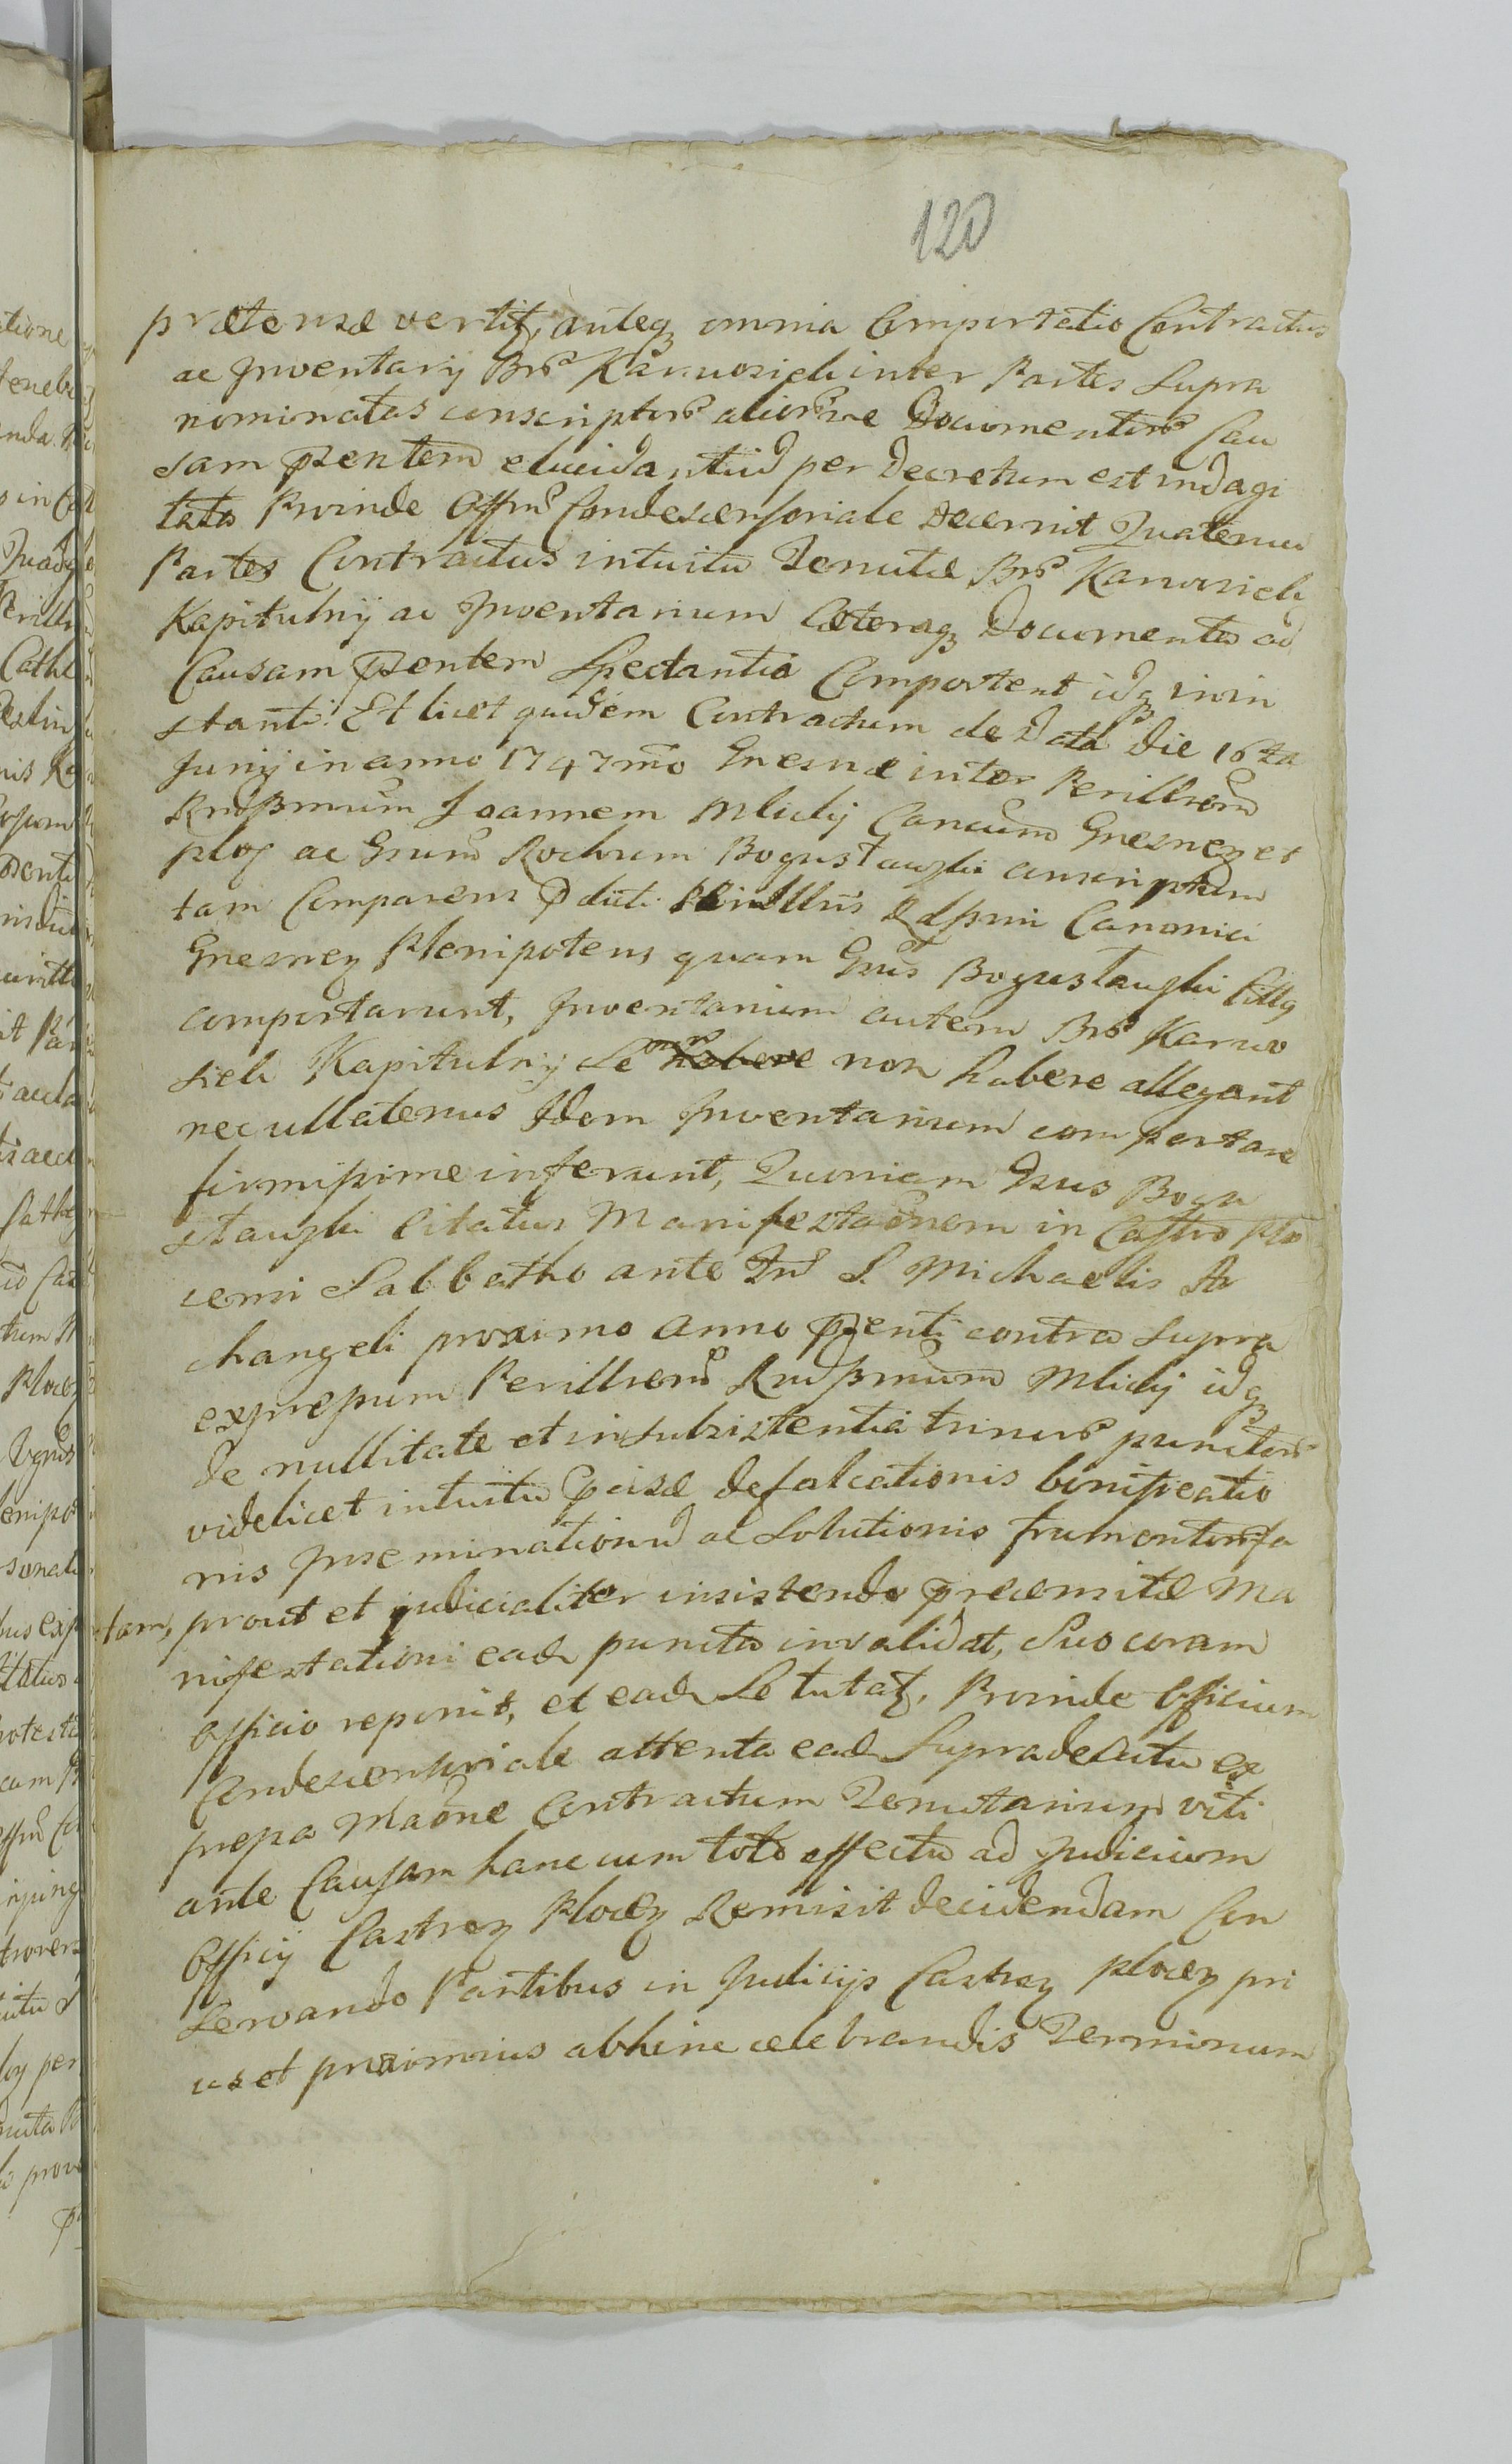 120
prætensæ vertitʒ, anteqʒ omnia Comportatio Contractus
ac Jnventarij Brȓ Karwosieki inter Partes Supra
nominatas conscriptorȓ aliorȓve Documentorȓ Cau
sam pʒentem elucidantiũ per Decretum est indagi
tata Proinde Offm̃ Condescensoriale Decernit Quatenus
Partes Contractus intuitu Tenutæ Brȓ Karwosieki
Kapitulnÿ ac Jnventarium Cæteraqʒ Documenta ad
Causam pʒentem Spectantia Comportent idqʒ in in
stanti. Et licet quidem Contractum de Data Die 16ta
Junij in anno 1747mo Gnesnæ inter Perillrem̃
Rndssmum Joannem Mlicki Cancum̃ Gnesneʒ et
ploc ac Gsum Rochum Bogusławski conscriptum
tam Comparens P dicti Perilllris Rdssmi Canonici
Gnesneʒ Plenipotens quam Gsus Bogusławski Cittʒ
comportarunt, Jnventarium autem Brȓ Karwo
sieki Kapitulnÿ Se non habere non habere allegant
nec ullatenus Idem Jnventarium comportare
firmissime inferunt, Quoniam Gsus Bogu
sławski Citatus Manifestaõnem in Castro Plo
censi Sabbatho ante Fm̃ S. Michaelis Ar
changeli proximo anno pʒenti contra Supra
expressum Perillrem̃ Rndssmum Mlicki idqʒ
de nullitate et insubsistentia trinorȓ punctorȓ
videlicet intuitu Cpisæ defalcationis bonificatio
nis Jnseminationũ ac Solutionis frumentorȓ fa
tam, prout et judicialiter insistendo præmissæ Ma
nifestationi ead puncta invalidat, Suo coram
Officio reponit, et ead Se tutatʒ. Proinde Officium
Condescensoriale attenta ead Supradicta ex
pressa Maõne Contractum Tenutarium viti
ante Causam hanc cum toto effectu ad Judicium
Officij Castreʒ Ploceʒ Remisit decidendam Con
Servando Partibus in Judicijs Castreʒ Ploceʒ pri
us et proximius abhinc celebrandis Terminum